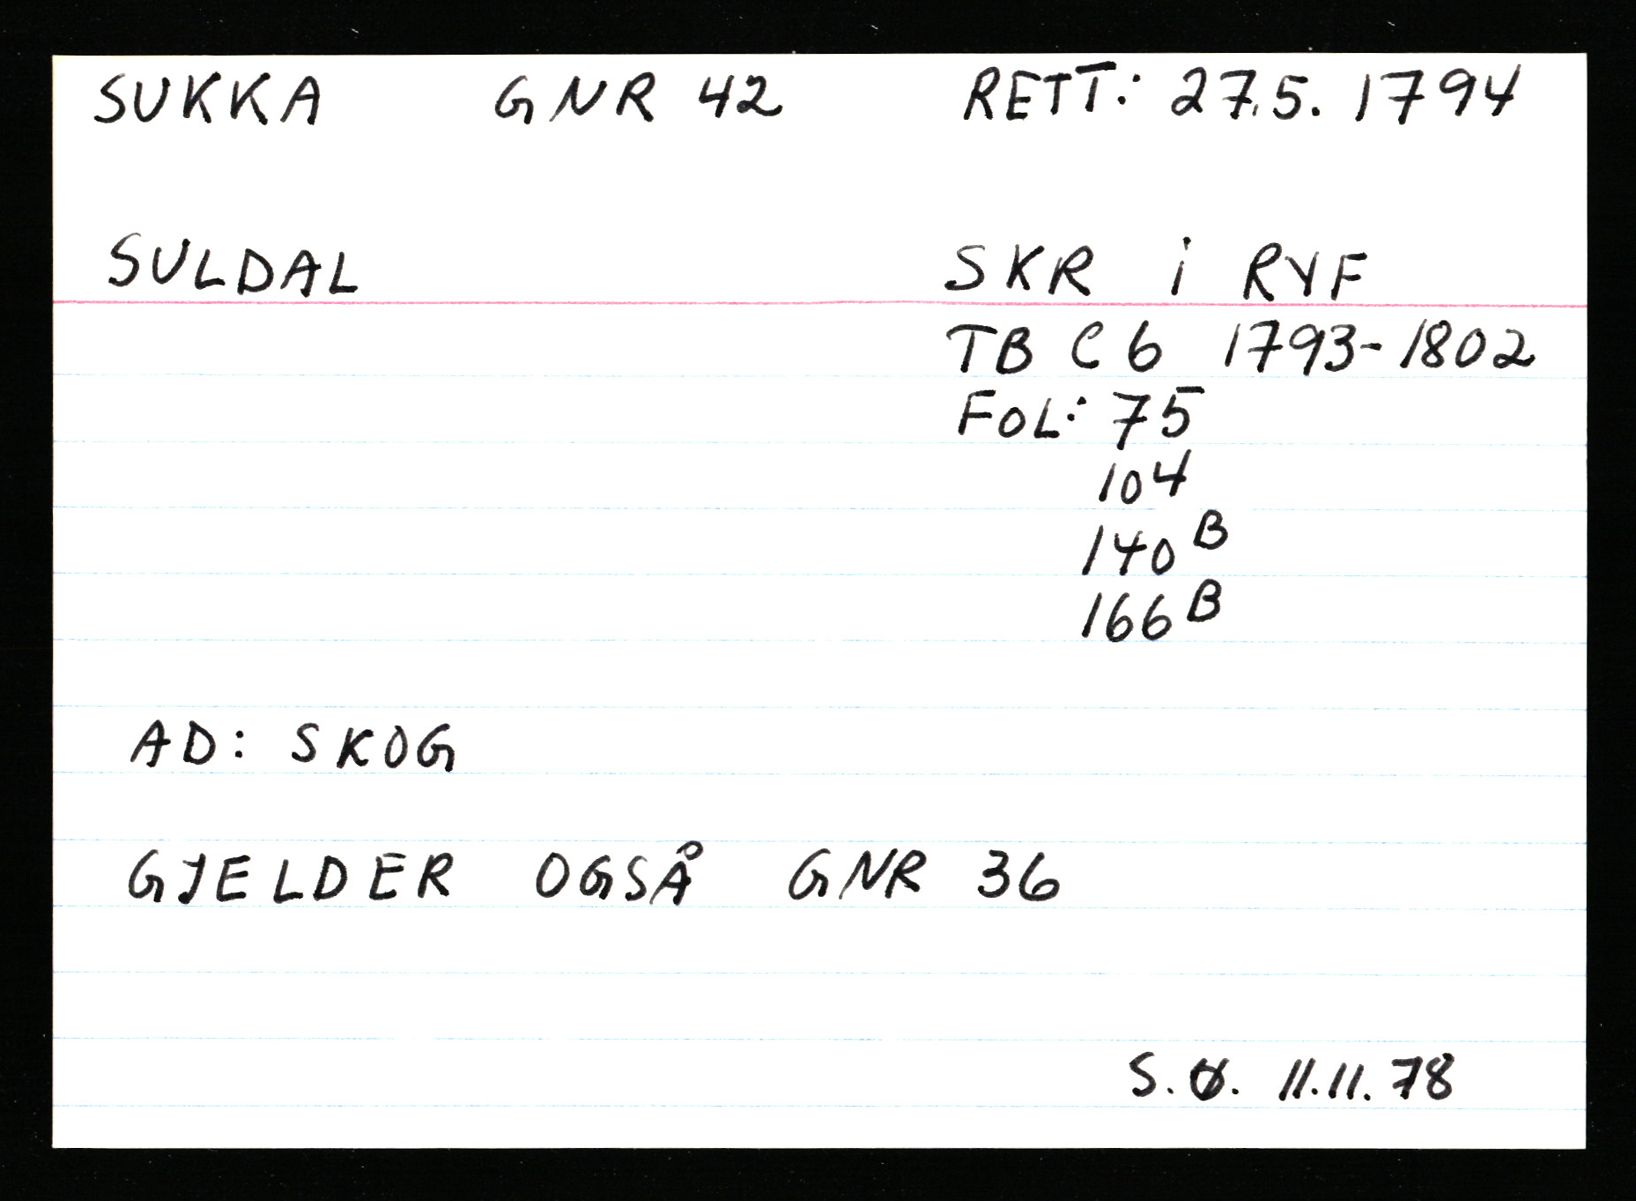 SUKKA GNR 42 RETT: 27.5. 1794
SULDAL SKR i RYF
TB C 6 1793-1802
FOL: 75
104
140 B
166 B
AD: SKOG
GJELDER OGSÅ GNR 36
S.Ø. 11.11.78